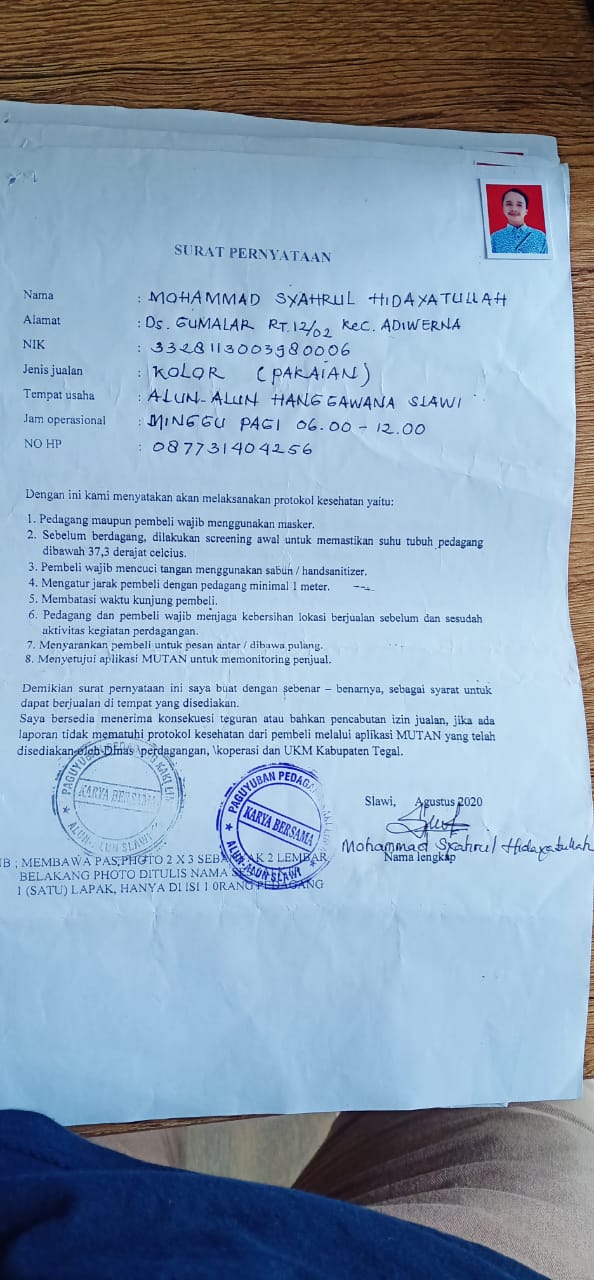 SURAT PERNYATAAN
Nama : MOHAMMAD SYAHRUL HIDAYATULLAH
Alamat : Ds. GUMALAR RT.12/02 KEC. ADIWERNA
NIK : 3328113003980006
Jenis jualan : KOLOR (PAKAIAN)
Tempat usaha : ALUN-ALUN HANGGAWANA SLAWI
Jam operasional : MINGGU PAGI 06.00 - 12.00
NO HP : 087731404256
Dengan ini kami menyatakan akan melaksanakan protokol kesehatan yaitu:
1. Pedagang maupun pembeli wajib menggunakan masker.
2. Sebelum berdagang, dilakukan screening awal untuk memastikan suhu tubuh pedagang
dibawah 37,3 derajat celcius.
3. Pembeli wajib mencuci tangan menggunakan sabun / handsanitizer.
4. Mengatur jarak pembeli dengan pedagang minimal 1 meter.
5. Membatasi waktu kunjung pembeli.
6. Pedagang dan pembeli wajib menjaga kebersihan lokasi berjualan sebelum dan sesudah
aktivitas kegiatan perdagangan.
7. Menyarankan pembeli untuk pesan antar / dibawa pulang.
8. Menyetujui aplikasi MUTAN untuk memonitoring penjual.
Demikian surat pernyataan ini saya buat dengan sebenar – benarnya, sebagai syarat untuk
dapat berjualan di tempat yang disediakan.
Saya bersedia menerima konsekuesi teguran atau bahkan pencabutan izin jualan, jika ada
laporan tidak mematuhi protokol kesehatan dari pembeli melalui aplikasi MUTAN yang telah
disediakan oleh Dinas \perdagangan, \koperasi dan UKM Kabupaten Tegal.
PAGUYUBAN PEDAGANG KAKI LIMA
KARYA BERSAMA
ALUN-ALUN SLAWI
PAGUYUBAN PEDAGANG
KARYA BERSAMA
ALUN-ALUN SLAWI
Slawi, Agustus 2020
Mohammad Syahrul Hidayatullah
Nama lengkap
NB ; MEMBAWA PAS PHOTO 2 X 3 SEBANYAK 2 LEMBAR
BELAKANG PHOTO DITULIS NAMA
1 (SATU) LAPAK, HANYA DI ISI 1 0RANG PEDAGANG